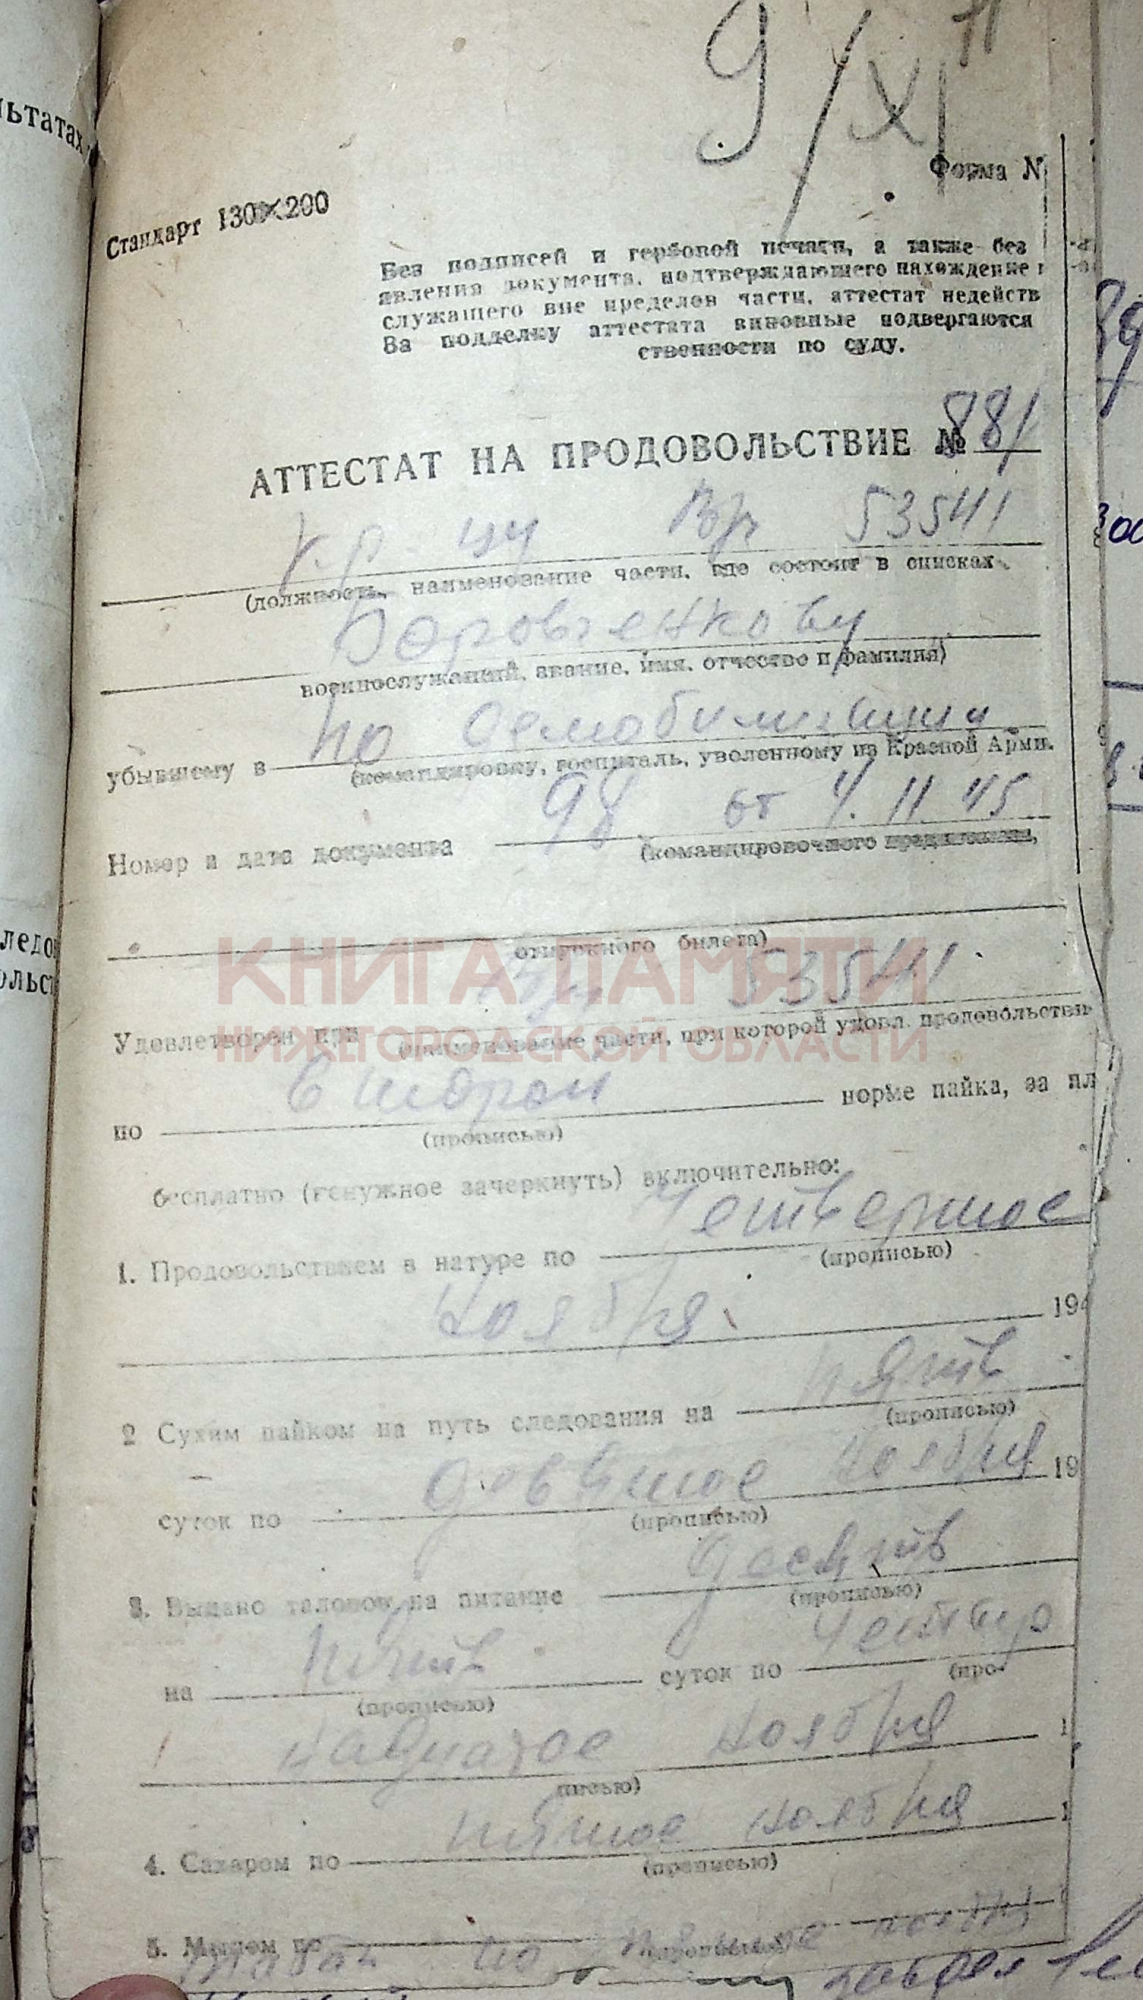 льтатах
9/XI
Форма N
Стандарт 130×200
Без подписей и гербовой печати, а также без
явления документа, подтверждающего нахождение
служащего вне пределов части, аттестат недейств
За подделку аттестата виновные подвергаются
ственности по суду.
АТТЕСТАТ НА ПРОДОВОЛЬСТВИЕ № 881
53541
(должность, наименование части, где состоит в списках
Боровченкову
военнослужащий, звание, имя, отчество и фамилия)
убывшему в по демобилизации
(командировку, госпиталь, уволенному из Красной Арми.
Номер и дата документа 98 от 4.11.45
(командировочного предписания,
отпускного билета)
КНИГА ПАМЯТИ
НИЖЕГОРОДСКОЙ ОБЛАСТИ
Удовлетворен при 53541
(наименование части, при которой удовл. продовольстви
по второй норме пайка, за пл
(прописью)
бесплатно (ненужное зачеркнуть) включительно:
1. Продовольствием в натуре по Четвертое
(прописью)
ноября 194
2 Сухим пайком на путь следования на пять
(прописью)
суток по девятое ноября 19
(прописью)
3. Выдано талонов на питание десять
(прописью)
на пять суток по Четыр
(прописью) (про-
надцатое ноября 1
писью)
4. Сахаром по пятое ноября 1
(прописью)
5. Мылом по
Табак по